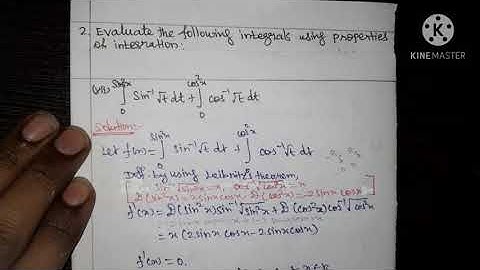 2. Evaluate the following integrals using properties
of integration:
KINEMASTER
(vii) ∫₀^{sin²x} sin⁻¹√t dt + ∫₀^{cos²x} cos⁻¹√t dt
Solution:
Let f(x) = ∫₀^{sin²x} sin⁻¹√t dt + ∫₀^{cos²x} cos⁻¹√t dt
by using Leibnitz's theorem,
f'(x) = D(sin²x) sin⁻¹√sin²x + D(cos²x) cos⁻¹√cos²x
= x (2sinx cosx - 2sinx cosx)
f'(x) = 0.